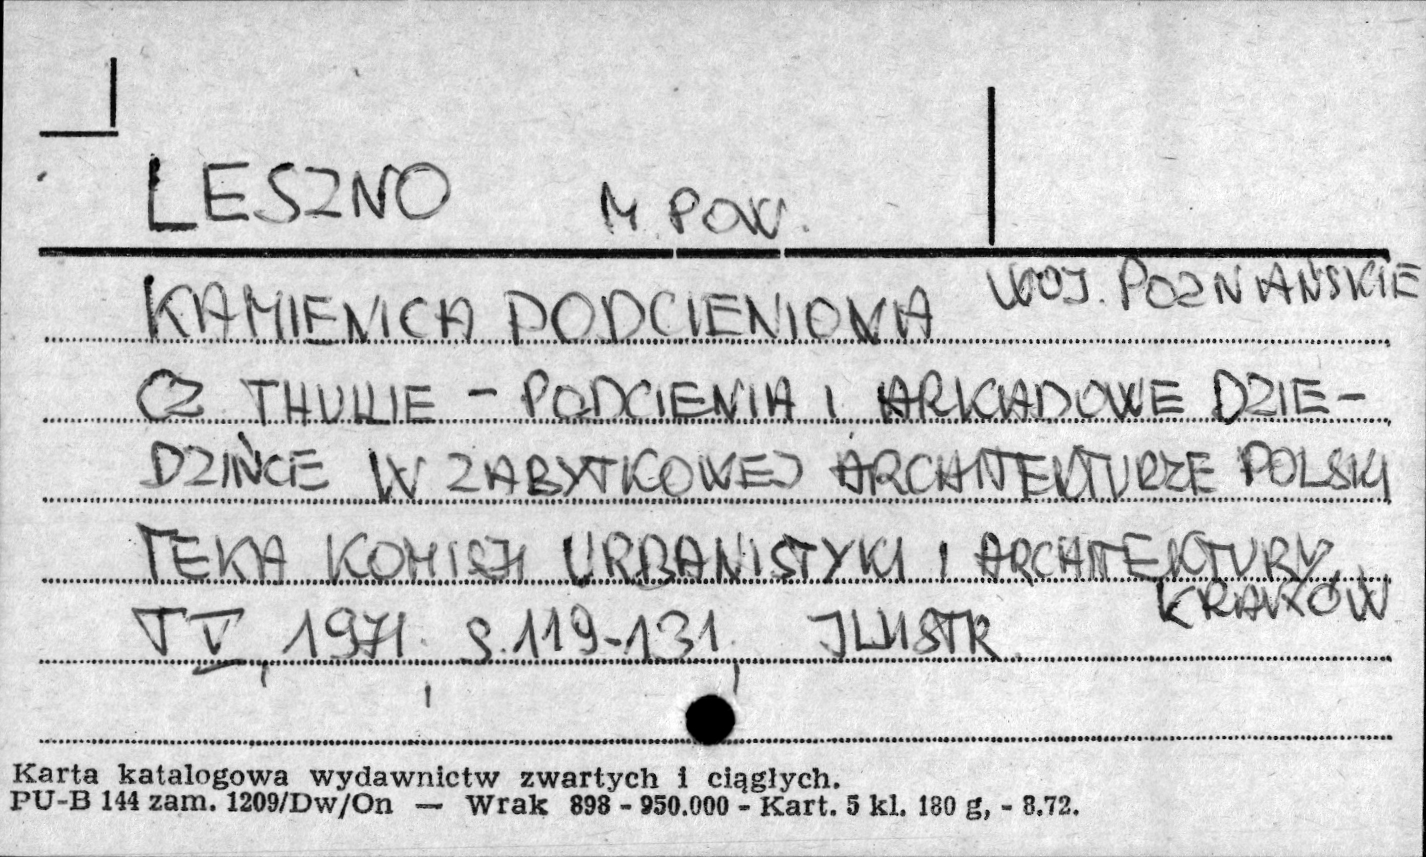 LESZNO M. POW.
WOJ. POZNAŃSKIE
KAMIENICA PODCIENIOWA
CZ THULLIE - PODCIENIA I ARKADOWE DZIE-
DZIŃCE W ZABYTKOWEJ ARCHITEKTURZE POLSKI
TEKA KOMISJI URBANISTYKI I ARCHITEKTURY,
KRAKÓW
T V, 1971, S. 119-131, ILUSTR.
Karta katalogowa wydawnictw zwartych i ciągłych.
PU-B 144 zam. 1209/Dw/On — Wrak 898 - 950.000 - Kart. 5 kl. 180 g, - 8.72.